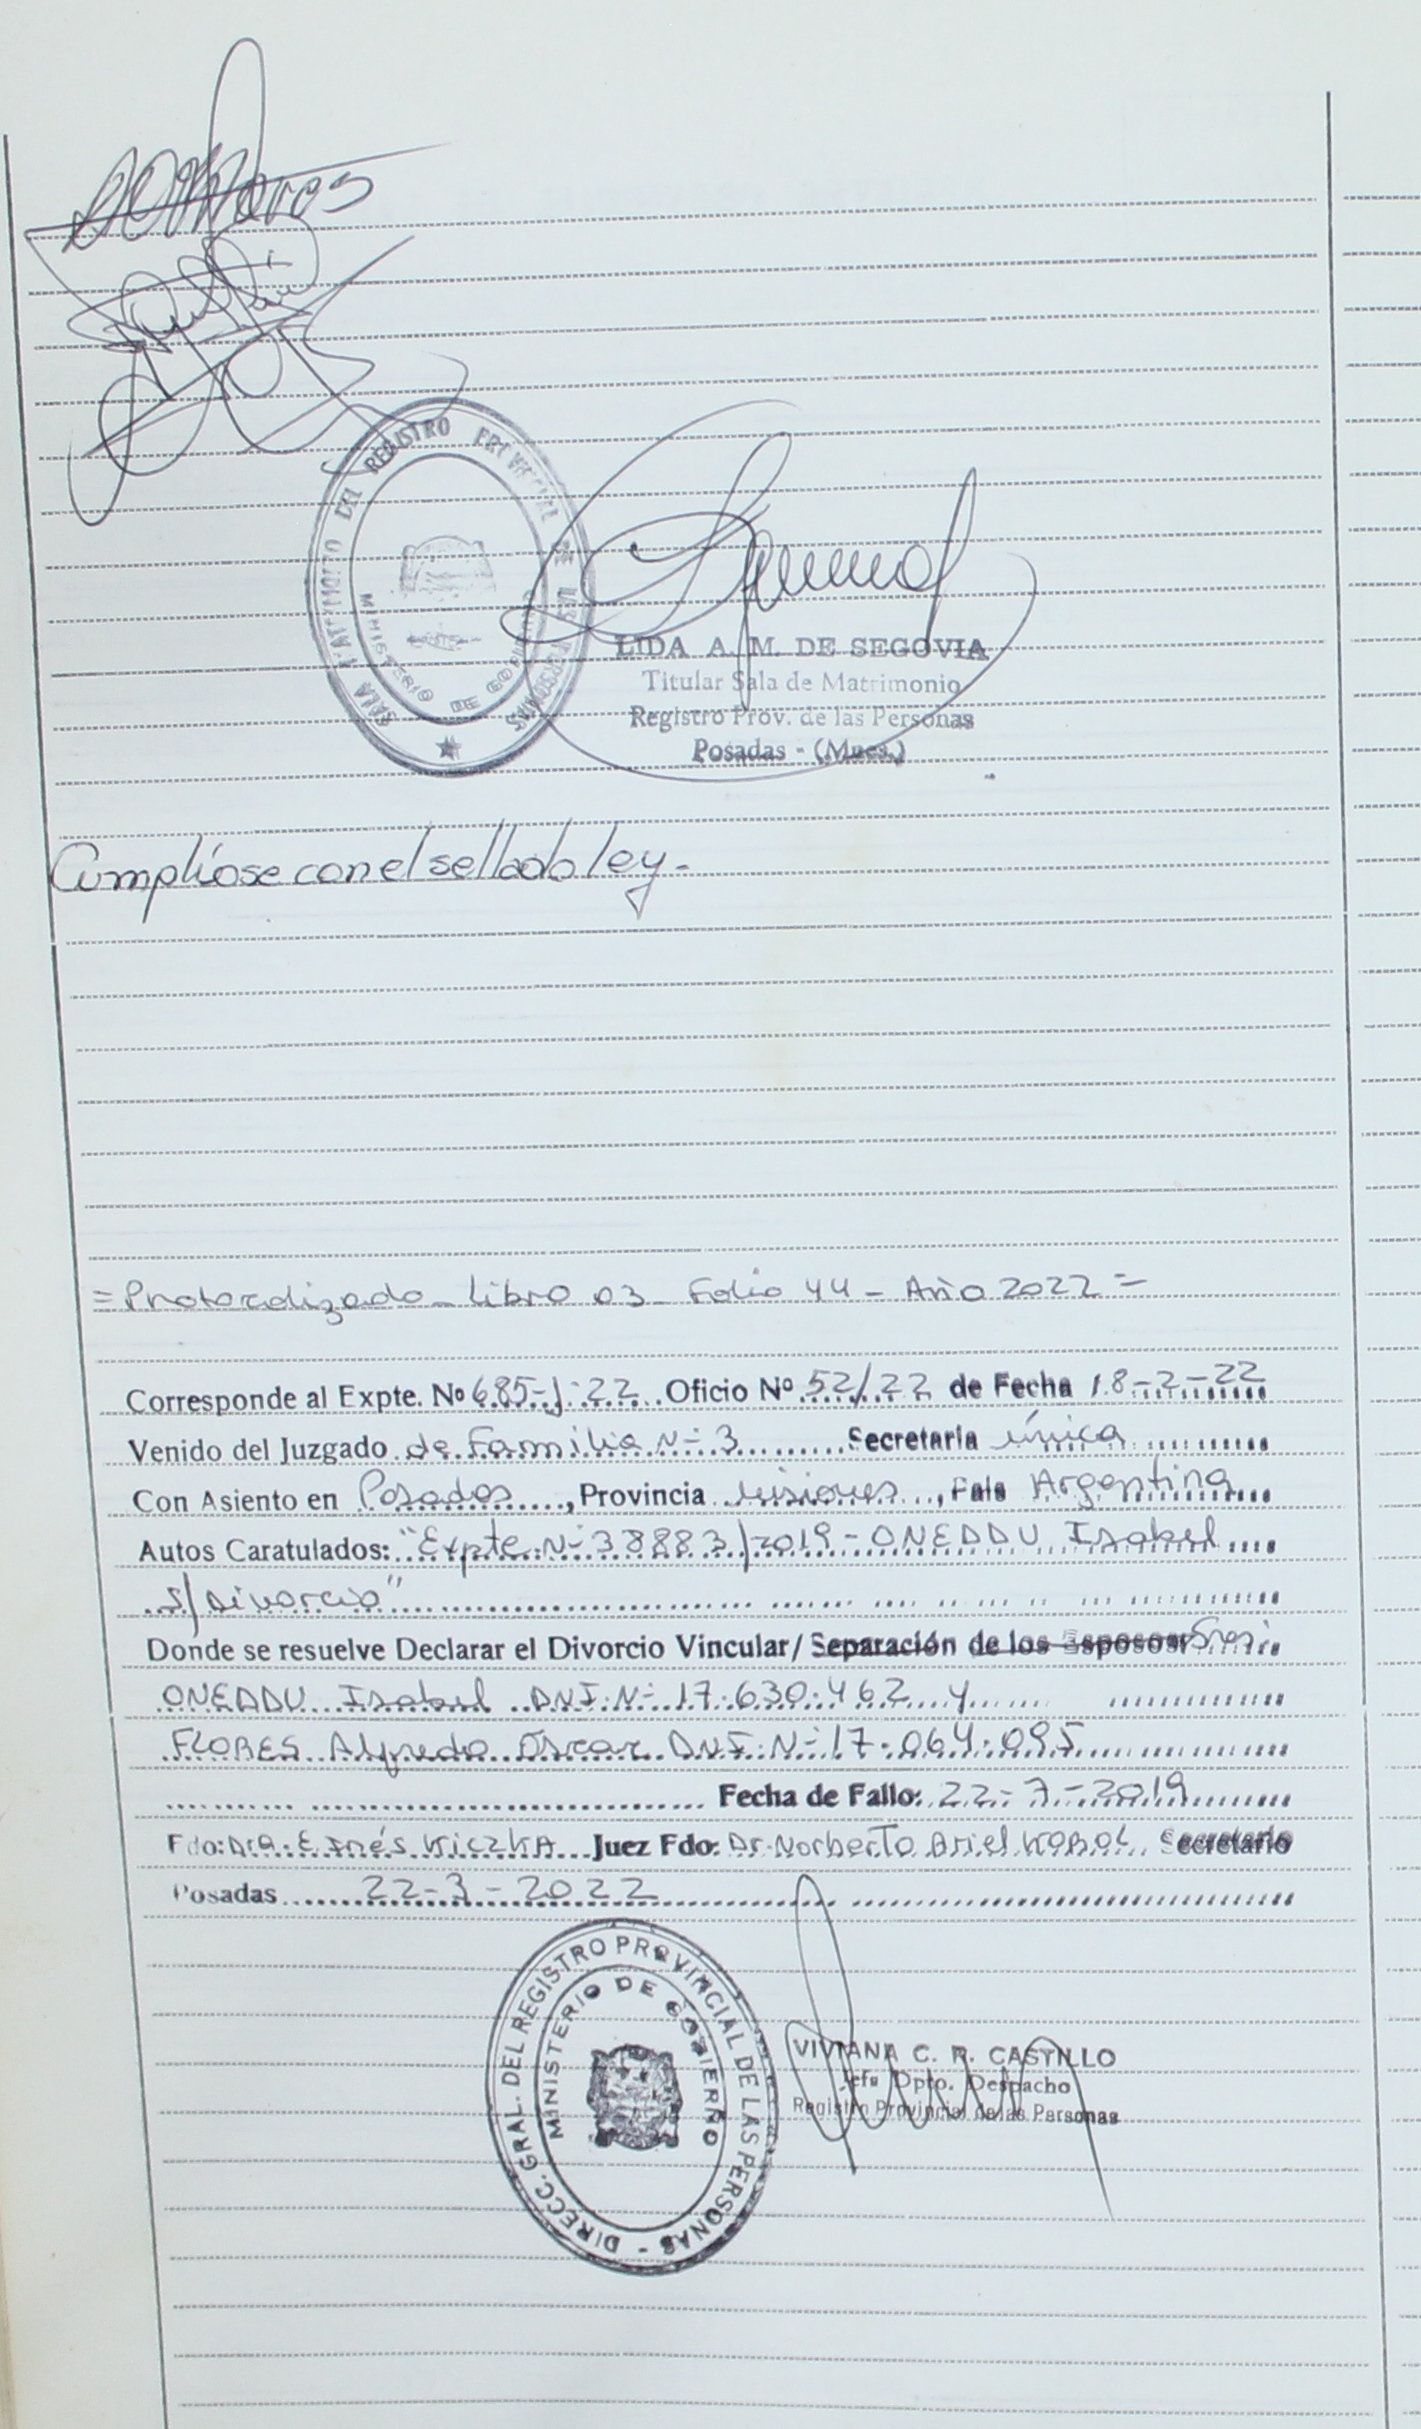 SALA MATRIMONIO DEL REGISTRO PROVINCIAL DE LAS PERSONAS
MINISTERIO DE GOBIERNO
LIDA A. M. DE SEGOVIA
Titular Sala de Matrimonio
Registro Prov. de las Personas
Posadas - (Mnes.)
Cumplióse con el sellado ley.-
= Protocolizado - Libro 03 - Folio 44 - Año 2022 =
Corresponde al Expte. Nº 685-J-22 Oficio Nº 52/22 de Fecha 18-2-22
Venido del Juzgado de Familia Nº 3 Secretaria única
Con Asiento en Posadas, Provincia Misiones, País Argentina
Autos Caratulados: "Expte Nº 38883/2019 - ONEDDU Isabel
s/Divorcio"
Donde se resuelve Declarar el Divorcio Vincular/ Separación de los Esposos Sres:
ONEDDU Isabel DNI Nº 17.630.462 y
FLORES Alfredo Oscar DNI Nº 17.064.095
Fecha de Fallo: 22-7-2019
Fdo: Dra. E. Inés KICZKA Juez Fdo: Dr. Norberto Ariel KOBOL Secretario
Posadas 22-3-2022
DIRECC. GRAL. DEL REGISTRO PROVINCIAL DE LAS PERSONAS -
MINISTERIO DE GOBIERNO
VIVIANA C. R. CASTILLO
Jefe Dpto. Despacho
Registro Provincial de las Personas